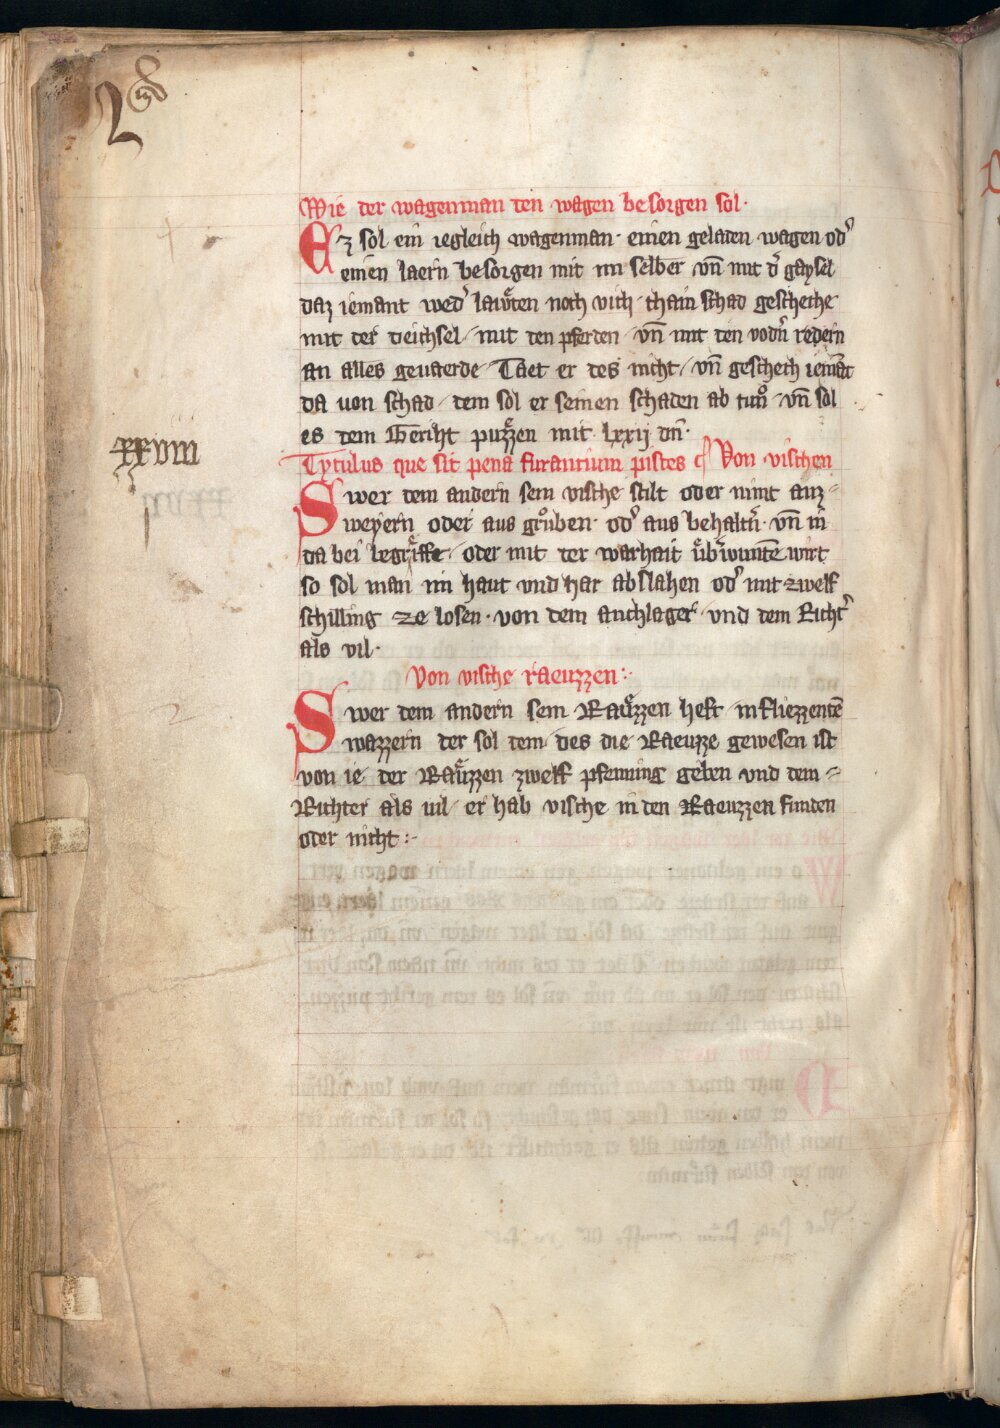 Wie der wagenman den wagen besorgen sol·
Ez sol ein iegleich wagenman· einen geladen wagen od̾
einen laern besorgen mit im selber vn̄ mit d̾ gaysel
daz iemant wed̾ laͤwten noch vich· chain schad geschehe
mit der deichsel· mit den pferden· vn̄ mit den vodn̄ redern
an alles geuaerde· Taet er des nicht/ vn̄ geschech iemāt
da von schad· dem sol er seinen schaden ab tuͦn· vn̄ sol
es dem Geriht puͤzzen mit· lxxij dn̄·
xxviiii
Tytulus que sit pena furantium pisces ¶ Von vischen
Swer dem andern sein vische stilt oder nimt auz=
weyern oder aus gruͦben· od̾ aus behaltn̄· vn̄ in
da bei begriffe· oder mit der warhait uͤb̾wunte wirt
so sol man im haut vnd har abslahen od̾ mit zwelf
schilling ze losen· von dem anchlager· vnd dem Richt̾
als vil·
Von vische raeuzzen:·
Swer dem andern sein Raͤuzzen heft in fliezzentē
wazzern der sol dem· des die Raeuzze gewesen ist
von ie der Raͤuzzen zwelf pfenning geben vnd dem=
Richter als uil· er hab vische in den Raeuzzen funden
oder nicht:·